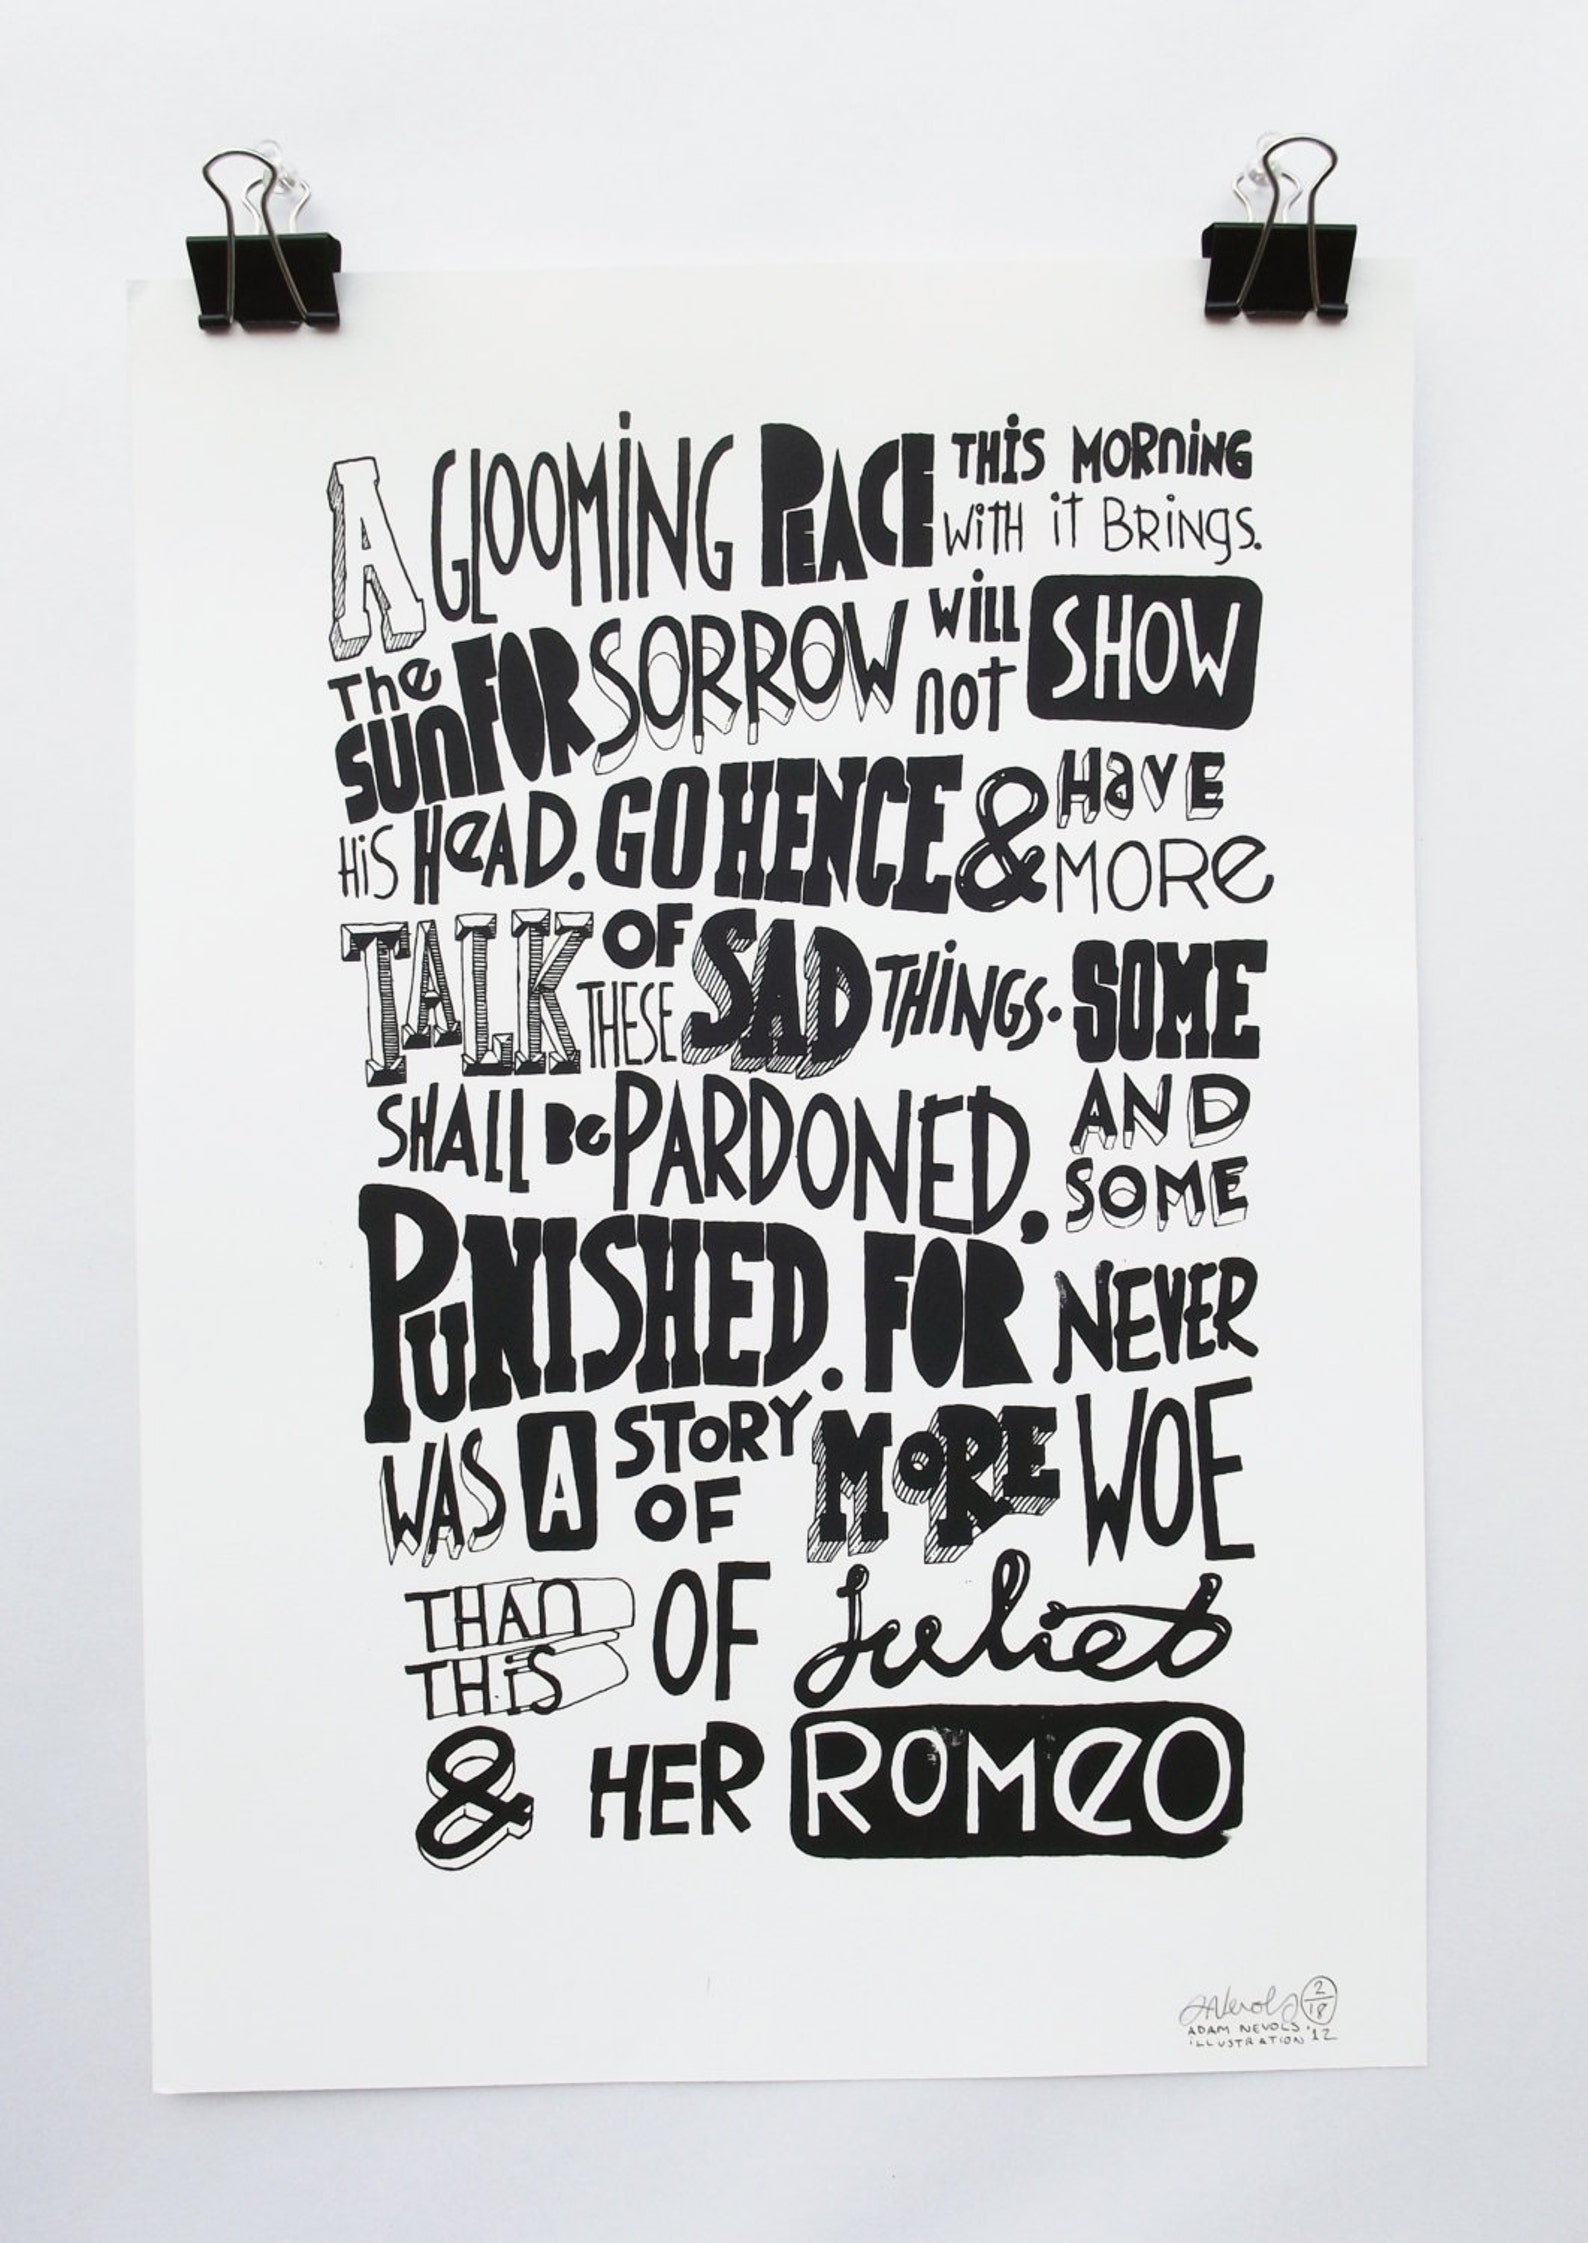 A GLOOMING PEACE THIS MORNING
WITH IT BRINGS.
The SUN FOR SORROW WILL not SHOW
HIS HEAD. GO HENCE & HAVE
MORE
TALK OF THESE SAD THINGS. SOME
SHALL BE PARDONED, AND
SOME
PUNISHED. FOR NEVER
WAS A STORY OF MORE WOE
THAN THIS OF Juliet
& HER ROMEO
ANevols 2/18
ADAM NEVOLS '12
ILLUSTRATION